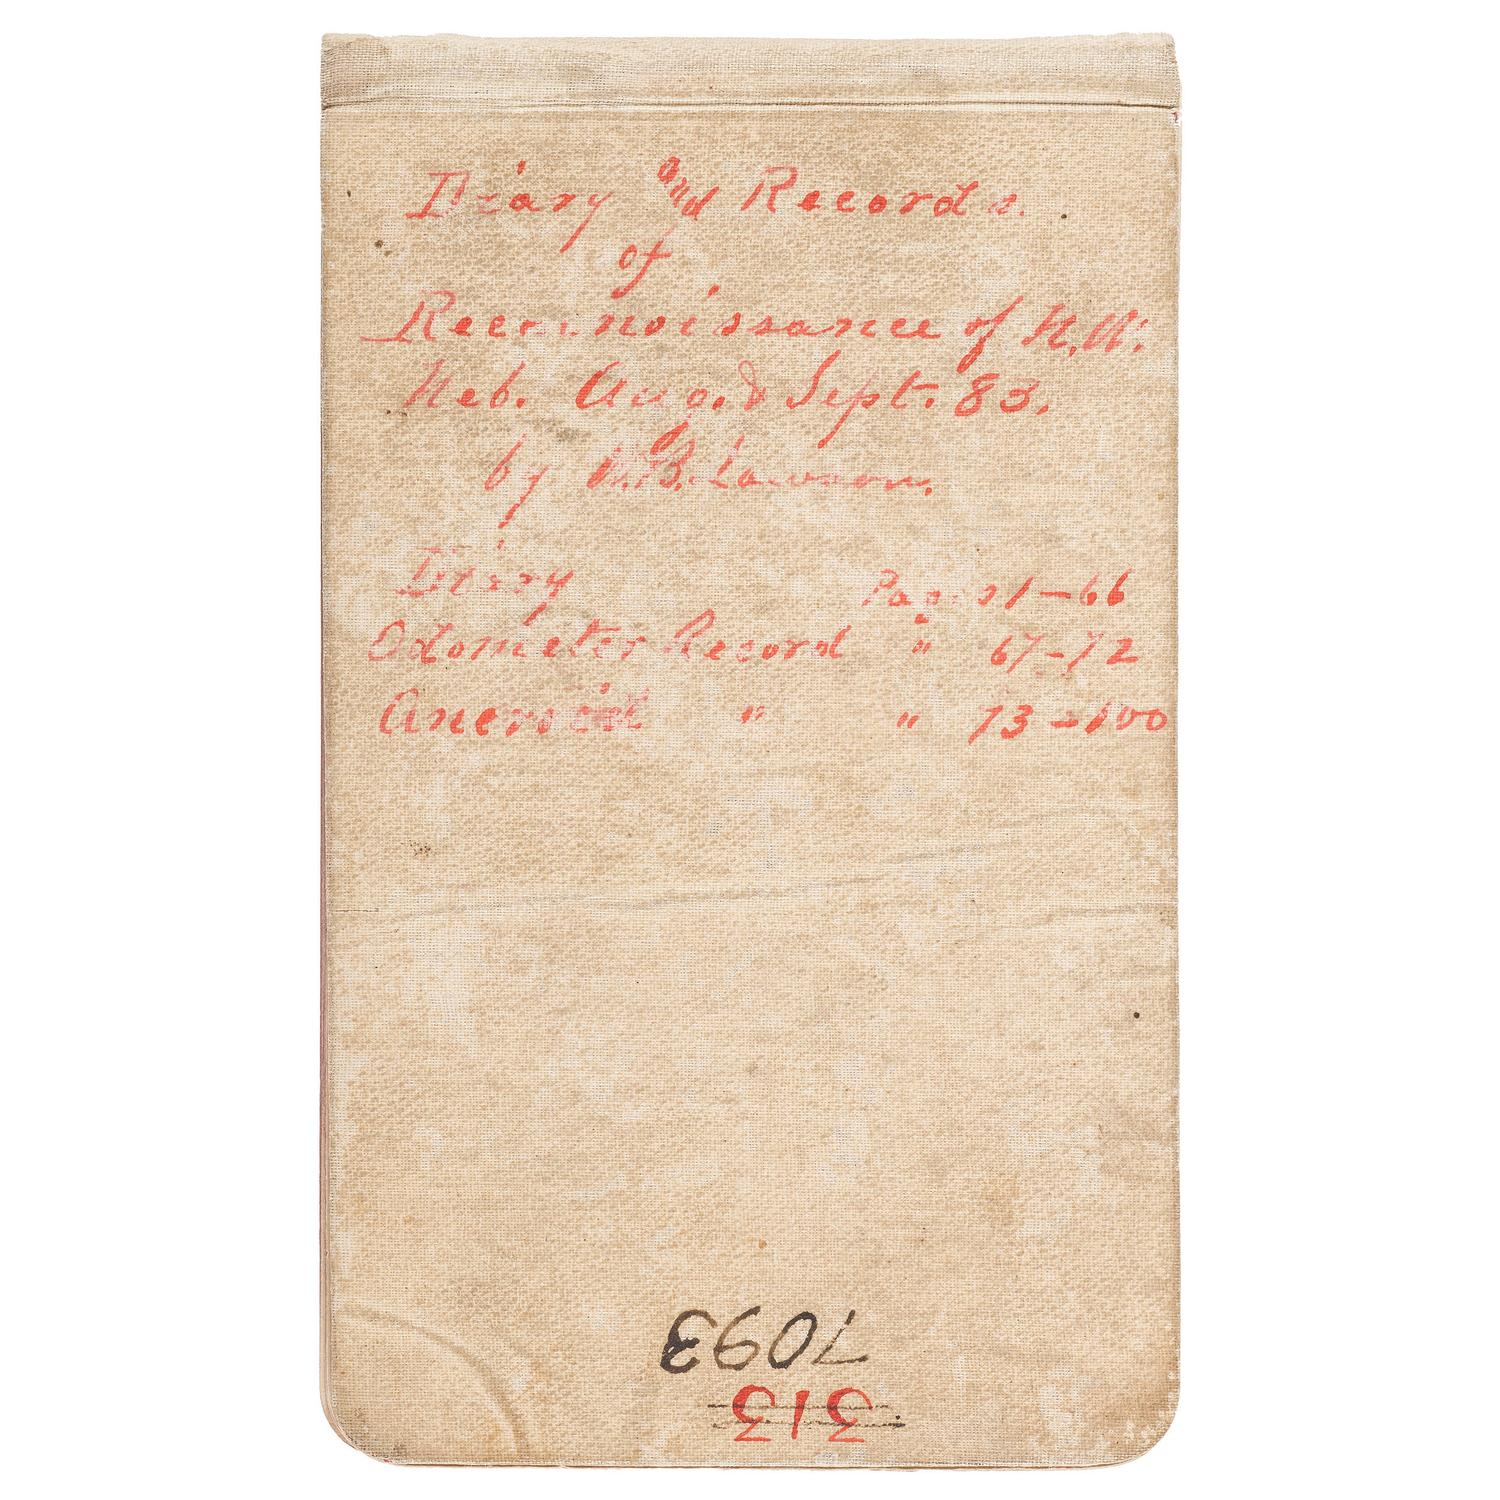 Diary and Records.
of
Reconnoissance of N.W.
Neb. Aug. & Sept. 83.
by W.B. Lawson.
Diary Pages 1-66
Odometer Record " 67-72
Aneroid " " 73-100
7093
313